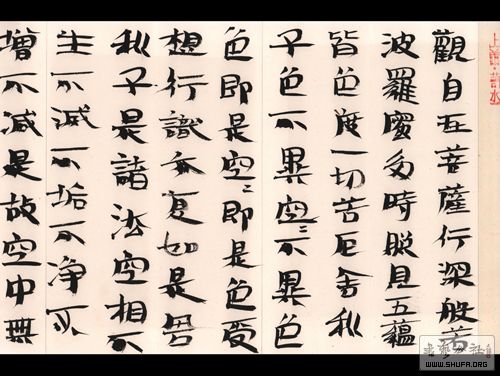 上善若水
觀自在菩薩行深般若
波羅蜜多時照見五蘊
皆色度一切苦厄舍利
子色不異空〻不異色
色即是空〻即是色受
想行識亦復如是舍
利子是諸法空相不
生不滅不垢不净不
增不減是故空中無
书艺公社
WWW.SHUFA.ORG